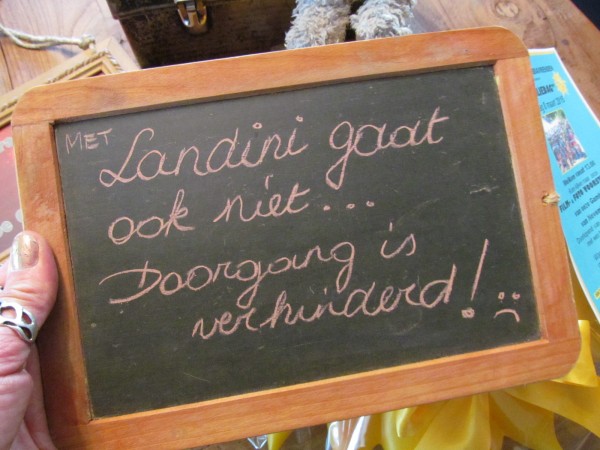 MET Landini gaat
ook niet...
Doorgang is
verhinderd! :(
FILM - & FOTO